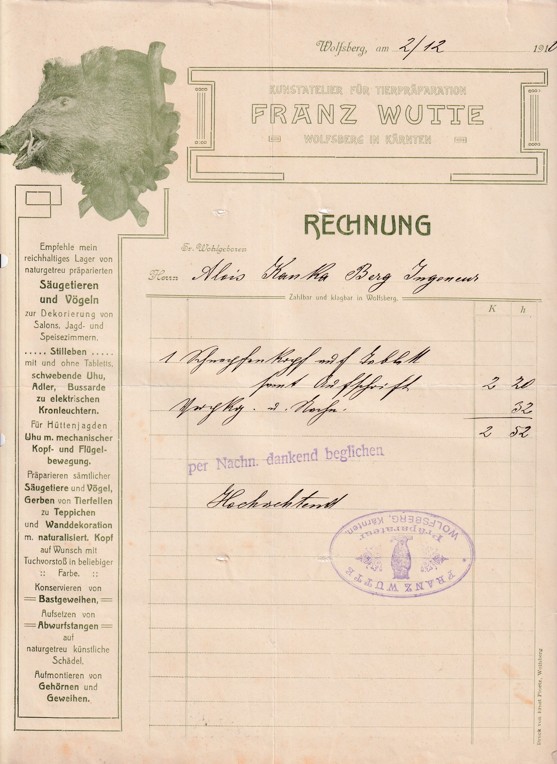 Wolfsberg, am 2/12 1910
KUNSTATELIER FÜR TIERPRÄPARATION
FRANZ WUTTE
WOLFSBERG IN KÄRNTEN
RECHNUNG
Sr. Wohlgeboren
Herrn Alois Kanka Berg Ingeneur
Zahlbar und klagbar in Wolfsberg.
K h
1 Schnepfenkopf auf Tablett
samt Aufschrift 2 20
Verpkg. u. Nachn. 32
2 52
per Nachn. dankend beglichen
Hochachtend
FRANZ WUTTE
Präparateur
WOLFSBERG, Kärnten.
Empfehle mein
reichhaltiges Lager von
naturgetreu präparierten
Säugetieren
und Vögeln
zur Dekorierung von
Salons, Jagd- und
Speisezimmern.
..... Stilleben .....
mit und ohne Tabletts,
schwebende Uhu,
Adler, Bussarde
zu elektrischen
Kronleuchtern.
Für Hüttenjagden
Uhu m. mechanischer
Kopf- und Flügel-
bewegung.
Präparieren sämtlicher
Säugetiere und Vögel,
Gerben von Tierfellen
zu Teppichen
und Wanddekoration
m. naturalisiert. Kopf
auf Wunsch mit
Tuchvorstoß in beliebiger
:: Farbe. ::
Konservieren von
Bastgeweihen,
Aufsetzen von
Abwurfstangen
auf
naturgetreu künstliche
Schädel.
Aufmontieren von
Gehörnen und
Geweihen.
Druck von Ernst Ploetz, Wolfsberg